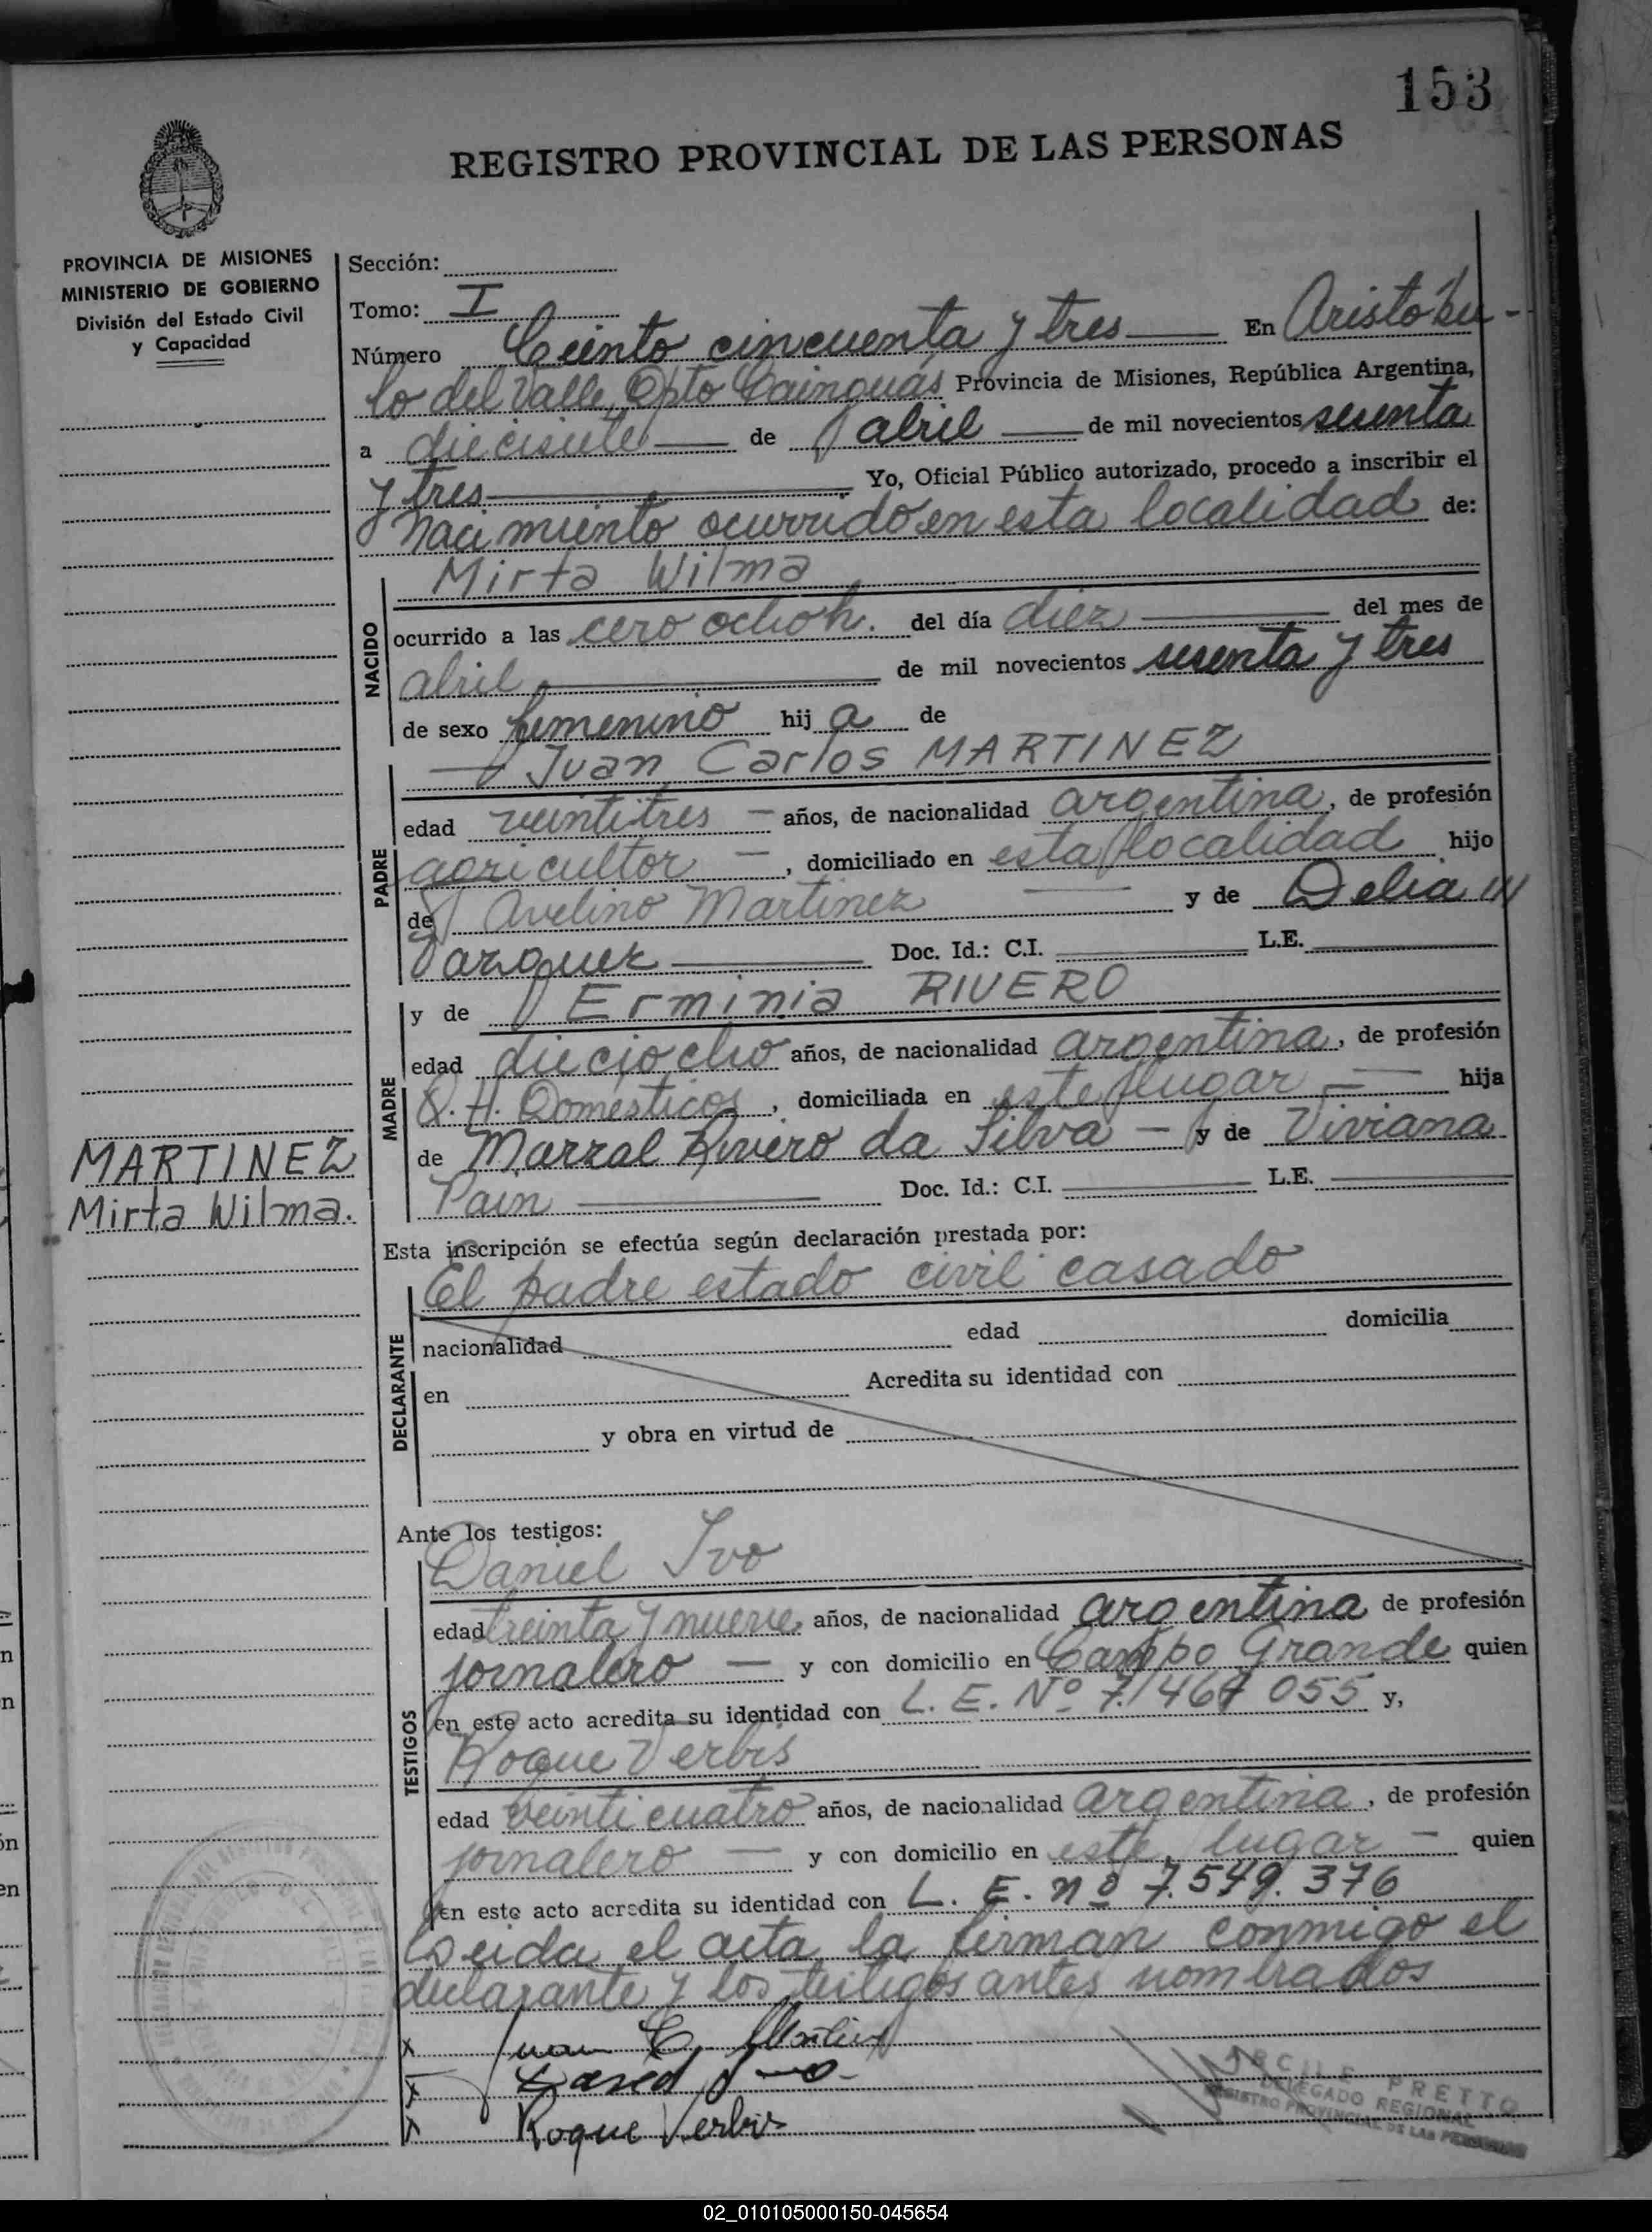 153
REGISTRO PROVINCIAL DE LAS PERSONAS
PROVINCIA DE MISIONES
MINISTERIO DE GOBIERNO
División del Estado Civil
y Capacidad
Sección:
Tomo: I
Número Ciento cincuenta y tres En Aristóbu-
lo del Valle, Dpto Cainguás Provincia de Misiones, República Argentina,
a diecisiete de abril de mil novecientos sesenta
y tres Yo, Oficial Público autorizado, procedo a inscribir el
nacimiento ocurrido en esta localidad de:
Mirta Wilma
NACIDO
ocurrido a las cero ocho h. del día diez del mes de
abril de mil novecientos sesenta y tres
de sexo femenino hij a de
Juan Carlos MARTINEZ
PADRE
edad veintitres años, de nacionalidad argentina, de profesión
agricultor, domiciliado en esta localidad hijo
de Avelino Martinez y de Delia
Vazquez Doc. Id.: C.I. L.E.
y de Erminia RIVERO
MADRE
edad dieciocho años, de nacionalidad argentina, de profesión
Q. H. Domésticos, domiciliada en este lugar hija
de Marzal Rivero da Silva y de Viviana
Pain Doc. Id.: C.I. L.E.
MARTINEZ
Mirta Wilma.
Esta inscripción se efectúa según declaración prestada por:
El padre estado civil casado
DECLARANTE
nacionalidad edad domicilia
en Acredita su identidad con
y obra en virtud de
Ante los testigos:
Daniel Ivo
TESTIGOS
edad treinta y nueve años, de nacionalidad argentina de profesión
jornalero y con domicilio en Campo Grande quien
en este acto acredita su identidad con L. E. Nº 7.467 055 y,
Roque Verbis
edad veinticuatro años, de nacionalidad argentina, de profesión
jornalero y con domicilio en este lugar quien
en este acto acredita su identidad con L. E. nº 7.549.376
Leida el acta la firman conmigo el
declarante y los testigos antes nombrados
x Juan C.
x
x Roque Verbis
ARCILE PRETTO
DELEGADO REGIONAL
REGISTRO PROVINCIAL DE LAS PERSONAS
02_010105000150-045654